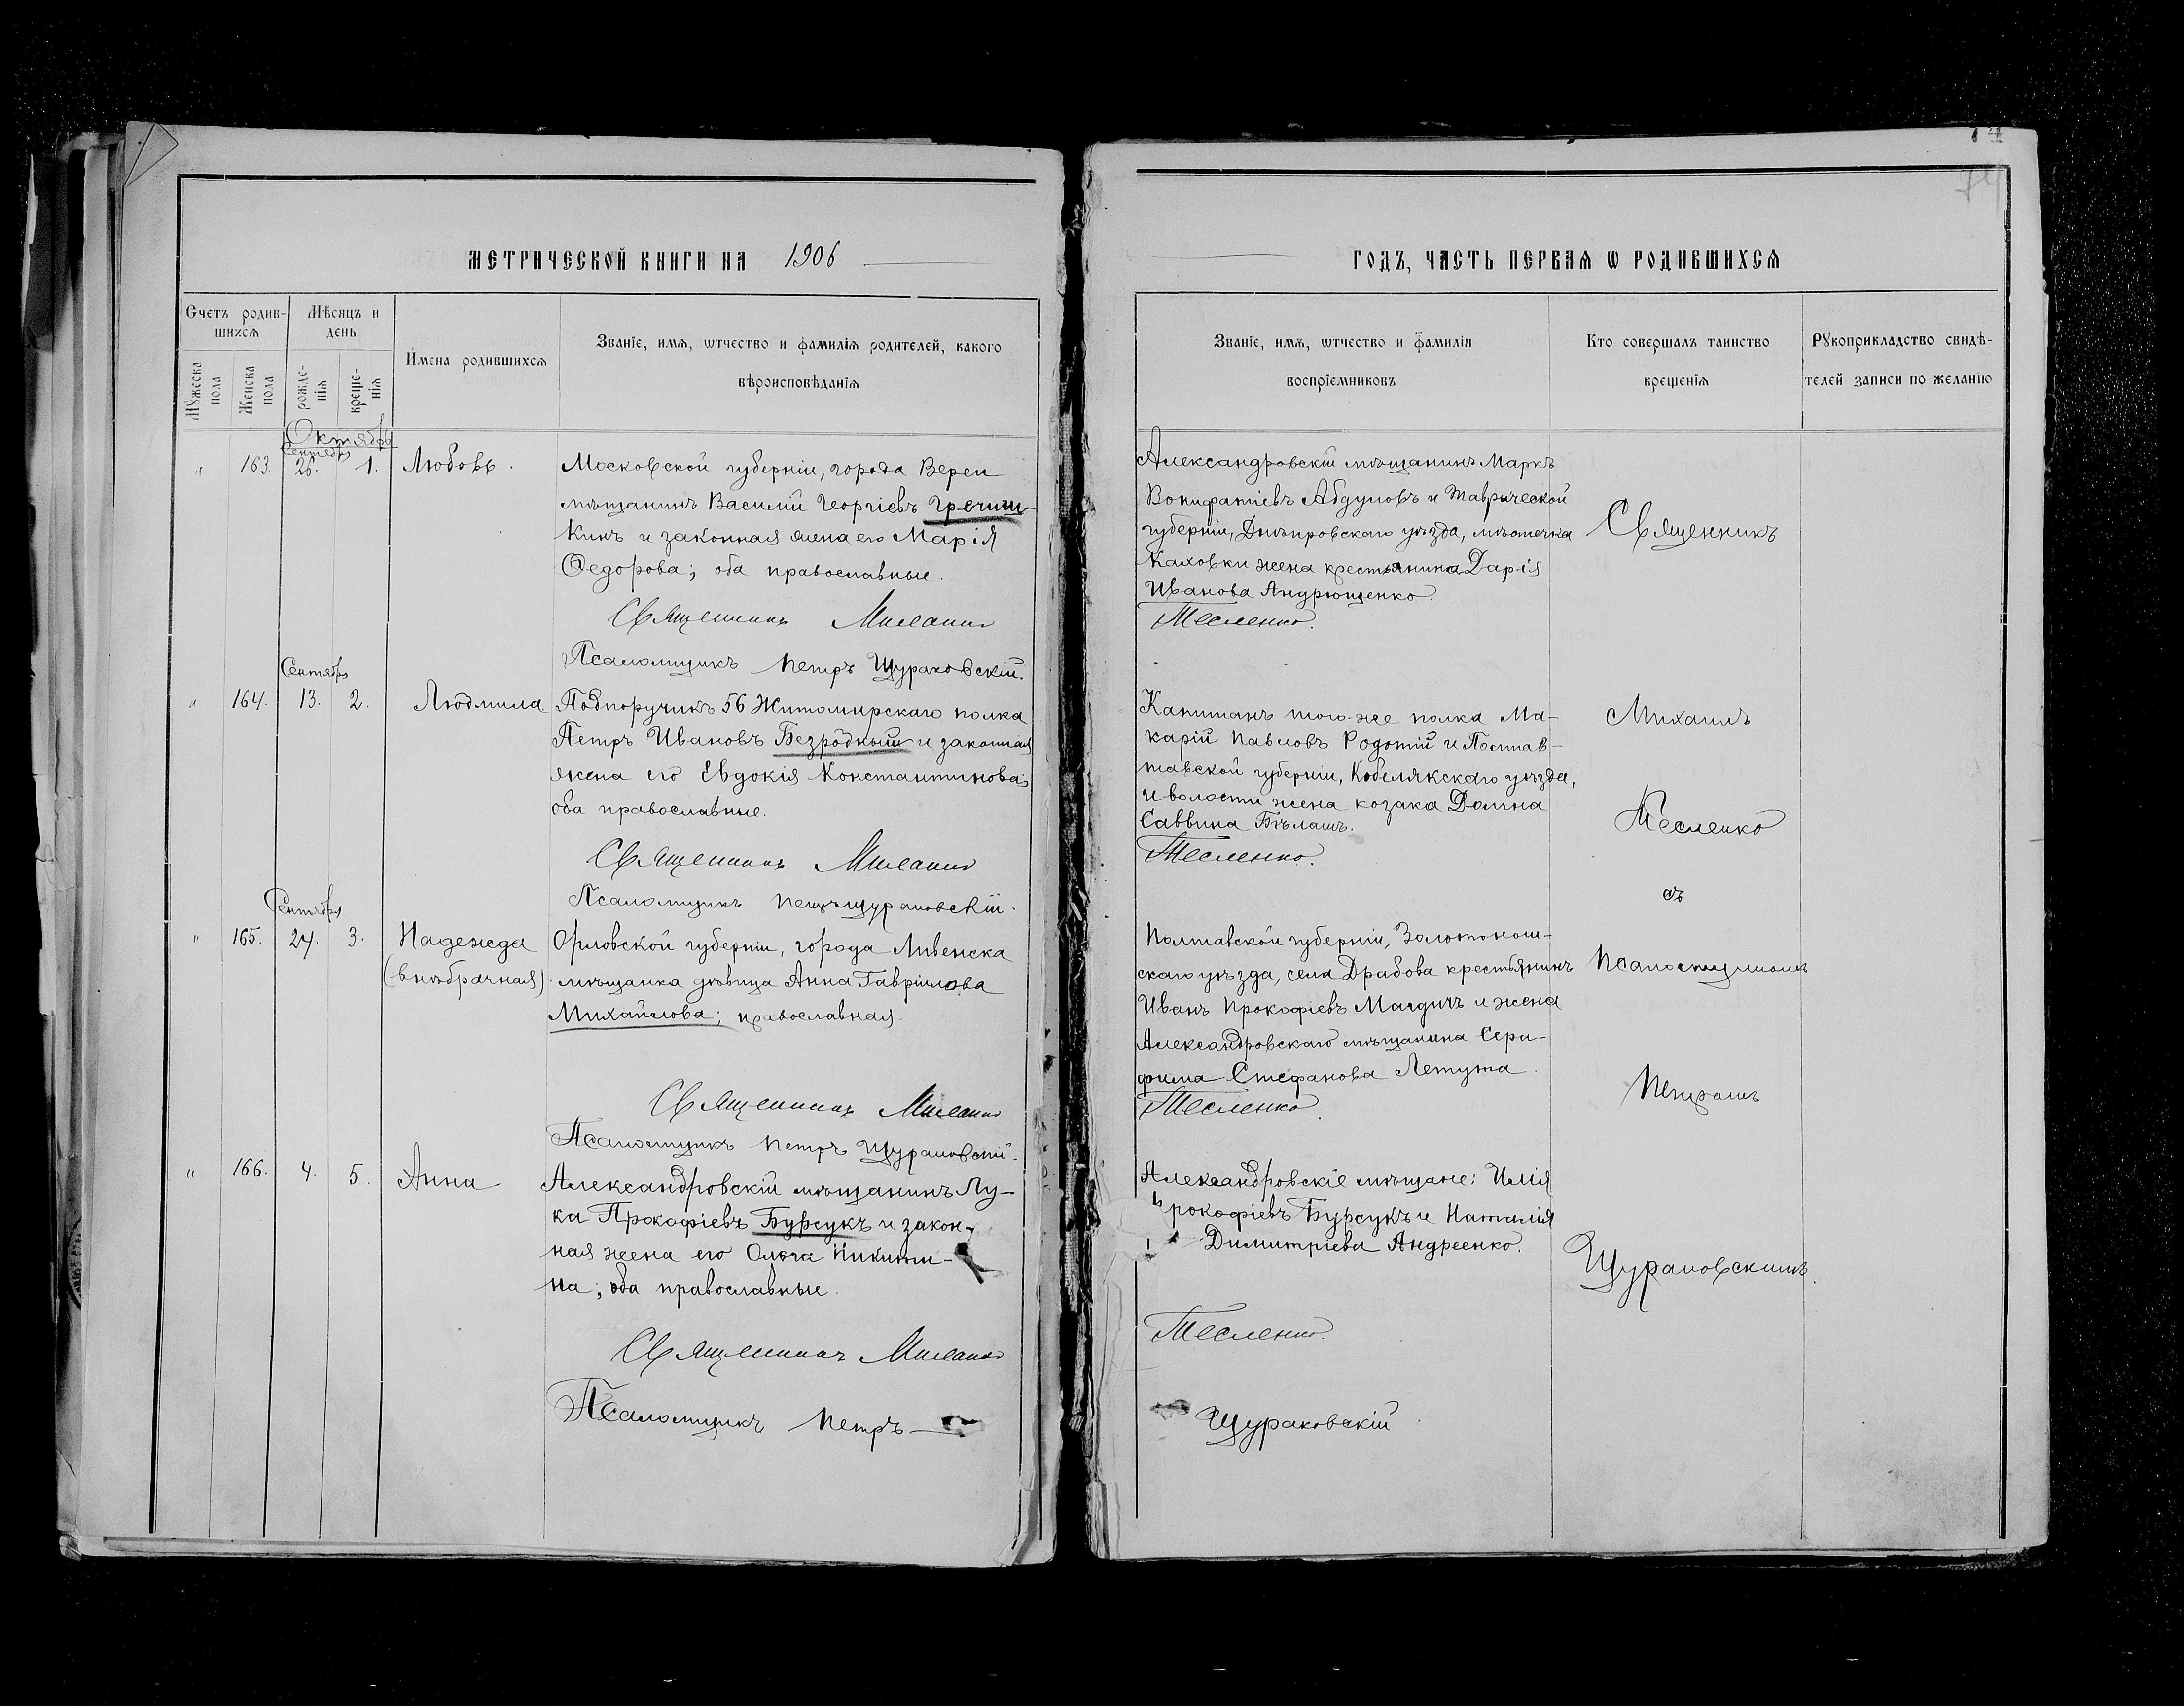 МЕТРИЧЕСКОЙ КНИГИ НА 1906
Счетъ родив-
шихсѧ
Мѣсяцъ и
день
Мꙋжеска
пола
Женска
пола
рожде-
нія
креще-
нія
Имена родившихсѧ
Званіе, имѧ, ѡтчество и фамиліѧ родителей, какого
вѣроисповѣданіѧ
Октябрь
Сентябрь
" 163. 26. 1. Любовь.
Московской губерніи, города Вереи
мѣщанинъ Василій Георгіевъ Гречиш-
кинъ и законная жена его Марія
Ѳедорова; оба православные.
Священникъ Михаилъ
Псаломщикъ Петръ Щураковскій.
Сентябрь
" 164. 13. 2. Людмила
Подпоручикъ 56 Житомирскаго полка
Петръ Ивановъ Безродный и законная
жена его Евдокія Константинова;
оба православные.
Священникъ Михаилъ
Псаломщикъ Петръ Щураковскій.
Сентябрь
" 165. 24. 3. Надежда
(внѣбрачная).
Орловской губерніи, города Ливенска
мѣщанка дѣвица Анна Гавріилова
Михайлова; православная.
Священникъ Михаилъ
Псаломщикъ Петръ Щураковскій.
" 166. 4. 5. Анна
Александровскій мѣщанинъ Лу-
ка Прокофіевъ Бурсукъ и закон-
ная жена его Ольга Никити-
на; оба православные.
Священникъ Михаилъ
Псаломщикъ Петръ
74
ГОДЪ, ЧАСТЬ ПЕРВАѦ Ѡ РОДИВШИХСѦ
Званіе, имѧ, ѡтчество и фамиліѧ
воспріемниковъ
Кто совершалъ таинство
крещеніѧ
Рꙋкоприкладство свидѣ-
телей записи по желанію
Александровскій мѣщанинъ Маркъ
Вонифатіевъ Абдуловъ и Таврической
губерніи, Днѣпровскаго уѣзда, мѣстечка
Каховки жена крестьянина Дарія
Иванова Андрющенко.
Тесленко.
Капитанъ того-же полка Ма-
карій Павловъ Родотій и Полтав-
тавской губерніи, Кобелякскаго уѣзда,
и волости жена козака Домна
Саввина Бѣлашъ.
Тесленко.
Полтавской губерніи, Золотонош-
скаго уѣзда, села Драбова крестьянинъ
Иванъ Прокофіевъ Магдичъ и жена
Александровскаго мѣщанина Сера-
фима Стефанова Летута.
Тесленко.
Александровскіе мѣщане: Илія
Прокофіевъ Бурсукъ и Наталія
Димитріева Андреенко.
Тесленко.
Щураковскій
Священникъ
Михаилъ
Тесленко
съ
Псаломщикомъ
Петромъ
Щураковскимъ.